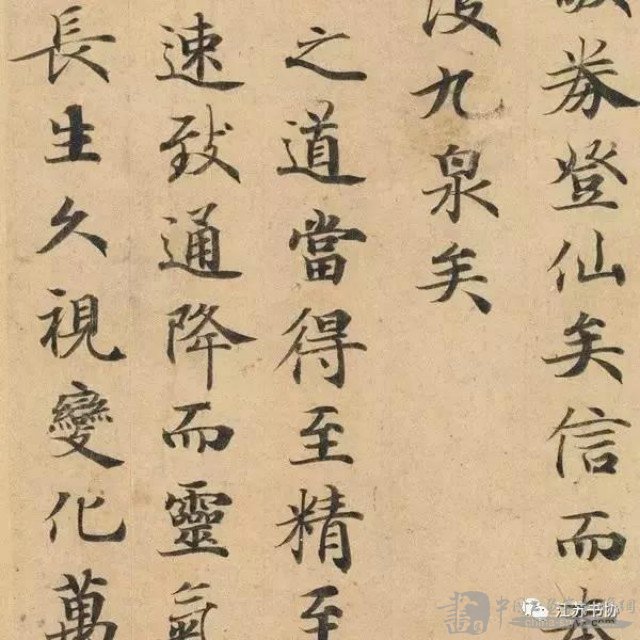 券登仙矣信而
没九泉矣
之道當得至精至
速致通降而靈氣
長生久視變化萬
江苏书协